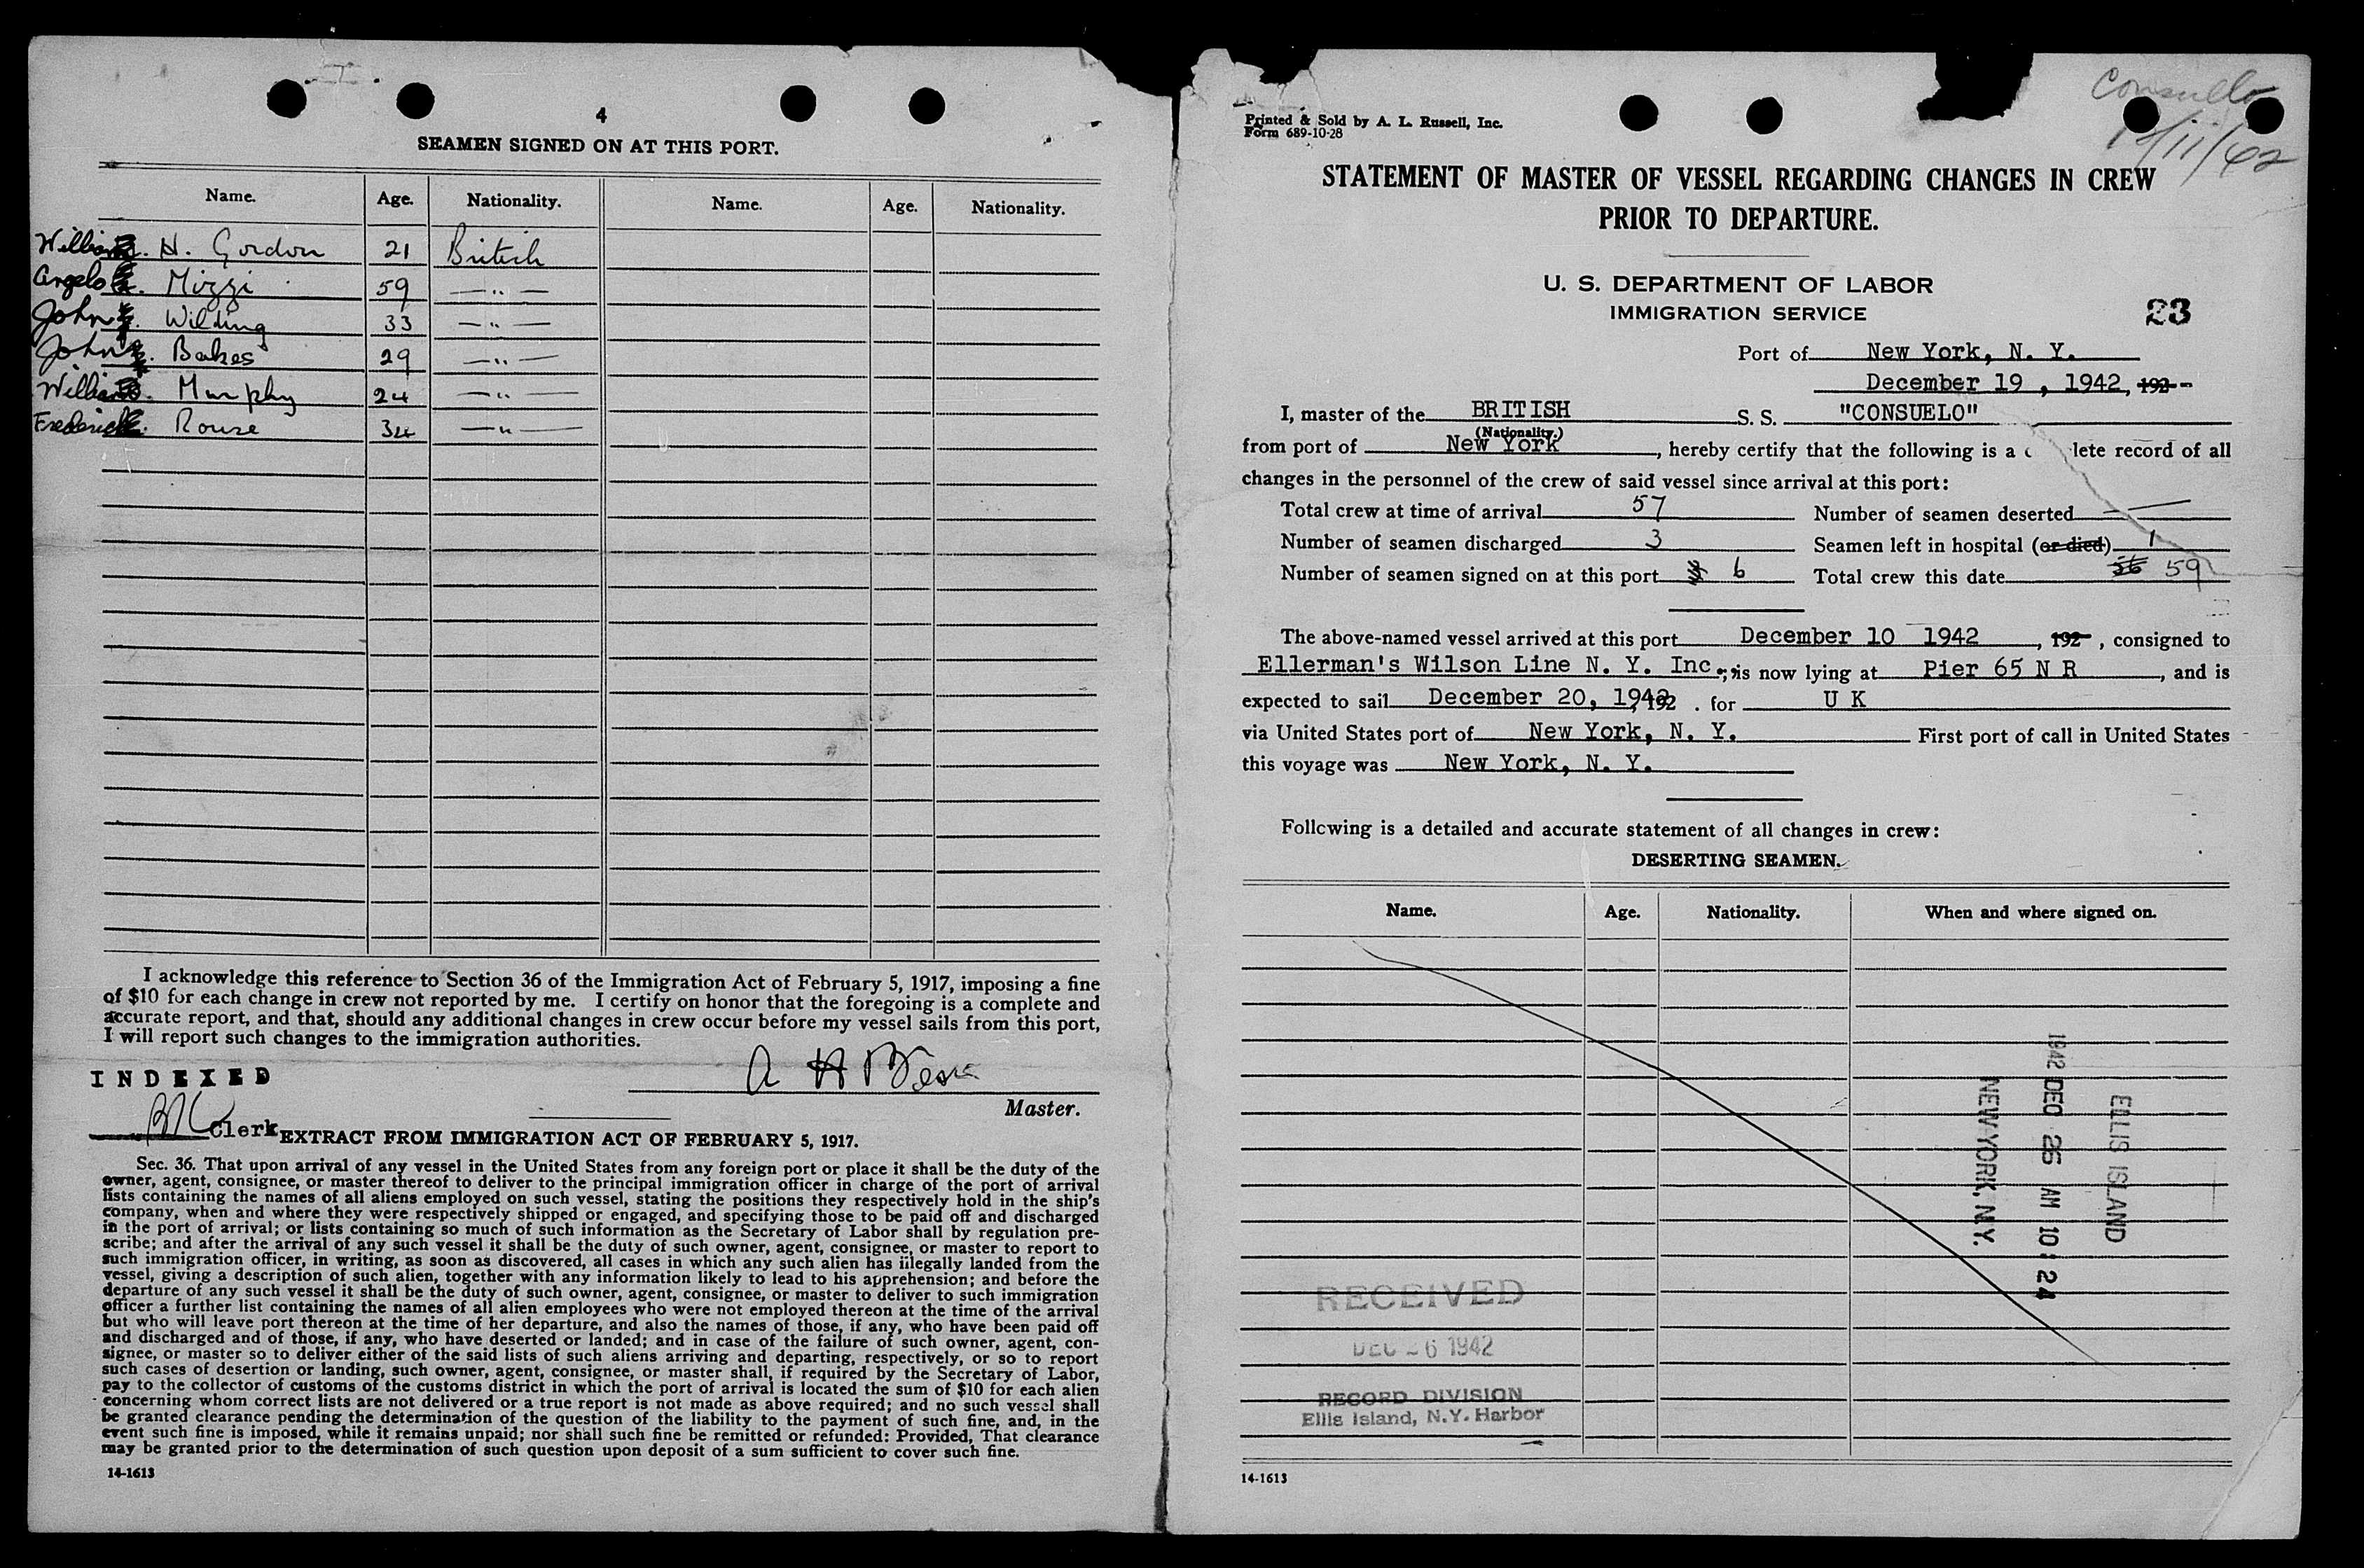 4
SEAMEN SIGNED ON AT THIS PORT.
Name. Age. Nationality. Name. Age. Nationality.
William H. Gordon 21 British
Angelo Mizzi 59 — " —
John Wilding 33 — " —
John Bakes 29 — " —
William Murphy 24 — " —
Frederick Rouse 34 — " —
I acknowledge this reference to Section 36 of the Immigration Act of February 5, 1917, imposing a fine
of $10 for each change in crew not reported by me. I certify on honor that the foregoing is a complete and
accurate report, and that, should any additional changes in crew occur before my vessel sails from this port,
I will report such changes to the immigration authorities.
INDEXED
A H
Master.
Clerk
EXTRACT FROM IMMIGRATION ACT OF FEBRUARY 5, 1917.
Sec. 36. That upon arrival of any vessel in the United States from any foreign port or place it shall be the duty of the
owner, agent, consignee, or master thereof to deliver to the principal immigration officer in charge of the port of arrival
lists containing the names of all aliens employed on such vessel, stating the positions they respectively hold in the ship's
company, when and where they were respectively shipped or engaged, and specifying those to be paid off and discharged
in the port of arrival; or lists containing so much of such information as the Secretary of Labor shall by regulation pre-
scribe; and after the arrival of any such vessel it shall be the duty of such owner, agent, consignee, or master to report to
such immigration officer, in writing, as soon as discovered, all cases in which any such alien has illegally landed from the
vessel, giving a description of such alien, together with any information likely to lead to his apprehension; and before the
departure of any such vessel it shall be the duty of such owner, agent, consignee, or master to deliver to such immigration
officer a further list containing the names of all alien employees who were not employed thereon at the time of the arrival
but who will leave port thereon at the time of her departure, and also the names of those, if any, who have been paid off
and discharged and of those, if any, who have deserted or landed; and in case of the failure of such owner, agent, con-
signee, or master so to deliver either of the said lists of such aliens arriving and departing, respectively, or so to report
such cases of desertion or landing, such owner, agent, consignee, or master shall, if required by the Secretary of Labor,
pay to the collector of customs of the customs district in which the port of arrival is located the sum of $10 for each alien
concerning whom correct lists are not delivered or a true report is not made as above required; and no such vessel shall
be granted clearance pending the determination of the question of the liability to the payment of such fine, and, in the
event such fine is imposed, while it remains unpaid; nor shall such fine be remitted or refunded: Provided, That clearance
may be granted prior to the determination of such question upon deposit of a sum sufficient to cover such fine.
14-1613
Consuelo
/11/42
Printed & Sold by A. L. Russell, Inc.
Form 689-10-28
STATEMENT OF MASTER OF VESSEL REGARDING CHANGES IN CREW
PRIOR TO DEPARTURE.
U. S. DEPARTMENT OF LABOR
IMMIGRATION SERVICE
23
Port of New York, N. Y.
December 19, 1942, 192-
I, master of the BRITISH S. S. "CONSUELO"
(Nationality.)
from port of New York, hereby certify that the following is a c lete record of all
changes in the personnel of the crew of said vessel since arrival at this port:
Total crew at time of arrival 57 Number of seamen deserted —
Number of seamen discharged 3 Seamen left in hospital (or died) 1
Number of seamen signed on at this port 6 Total crew this date 56 59
The above-named vessel arrived at this port December 10 1942, 192 , consigned to
Ellerman's Wilson Line N. Y. Inc.; is now lying at Pier 65 N R, and is
expected to sail December 20, 1942, 192 . for U K
via United States port of New York, N. Y. First port of call in United States
this voyage was New York, N. Y.
Following is a detailed and accurate statement of all changes in crew:
DESERTING SEAMEN.
Name. Age. Nationality. When and where signed on.
ELLIS ISLAND
1942 DEC 26 AM 10:24
NEW YORK, N.Y.
RECEIVED
DEC 26 1942
RECORD DIVISION
Ellis Island, N.Y. Harbor
14-1613